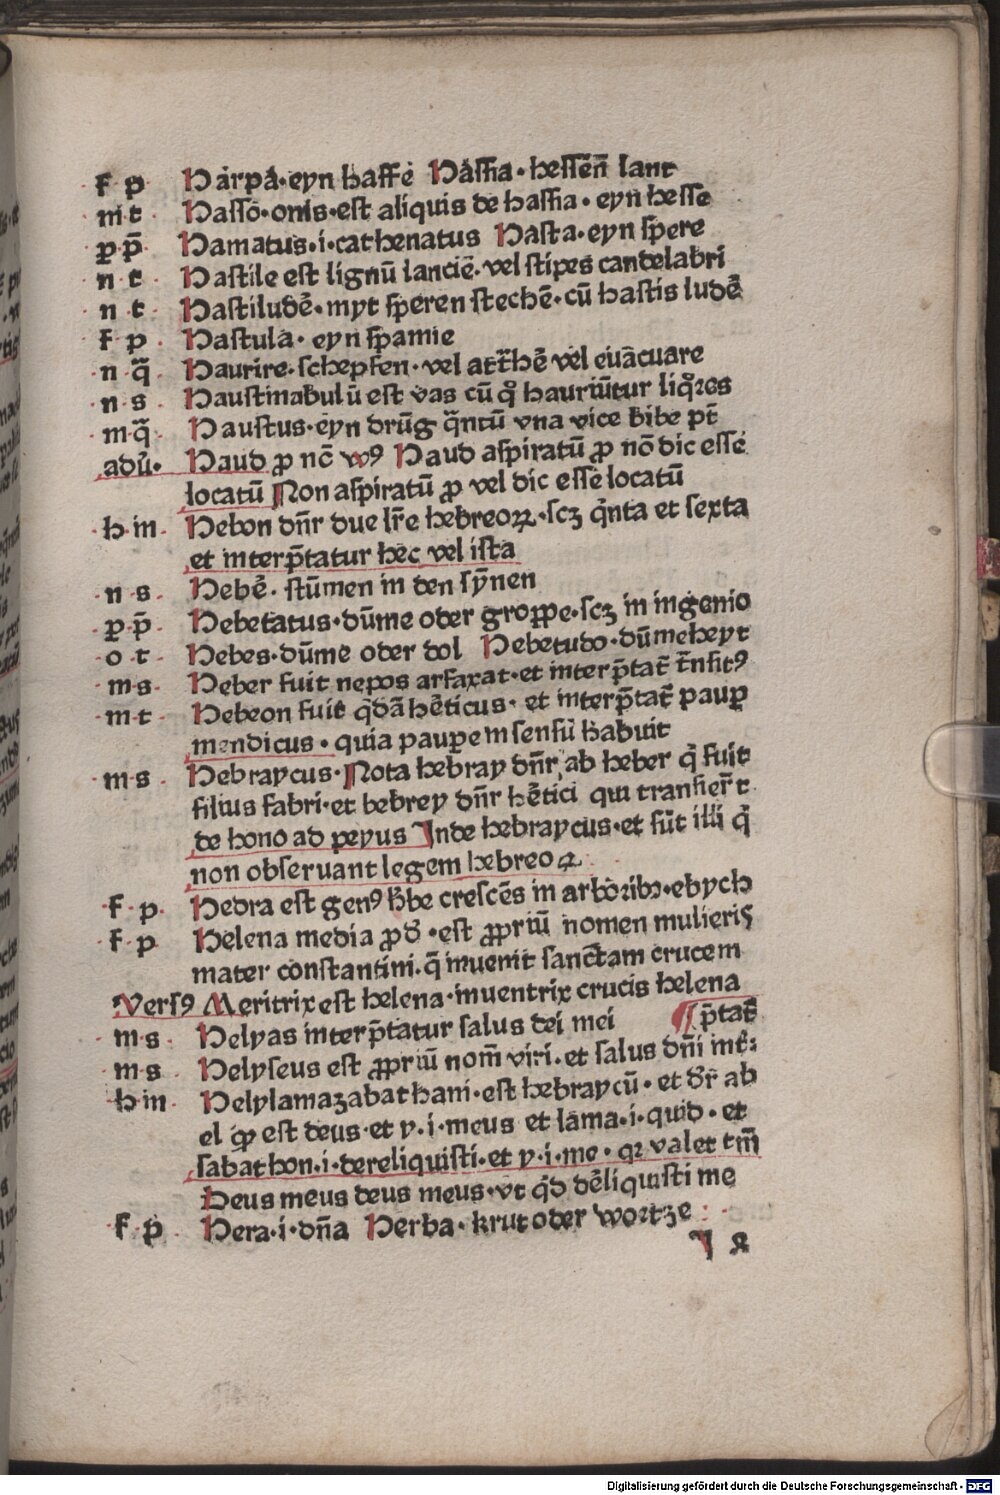 f p Harpa·eyn haffe Hassia·hessēn̄ lant
m t Hasso·onis·est aliquis de hassia·eyn hesse
ꝑ p̄ Hamatus·i·cathenatus Hasta·eyn spere
n t Hastile est lignū lancie·vel stipes candelabri
n t Hastiludē·myt speren stechē·cū hastis ludē
f p Hastula·eyn spamie
n q̄ Haurire·schepfen·vel attrhē vel euacuare
n s Haustinabulū est vas cū qͦ hauriūtur liqͦres
m q̄ Haustus·eyn drūg q̄ntū vna vice bibe pt̄
adū· Haud ꝓ nō Haud aspiratū ꝓ nō dic esse
locatū Non aspiratū ꝓ vel dic esse locatū
h in Hebon dn̄r due lr̄e hebreoꝝ·scꝫ qͥnta et sexta
et interp̄tatur hec vel ista
n s Hebē·stūmen in den sȳnen
ꝑ·p̄ Hebetatus·dūme oder groppe·scꝫ in ingenio
o t Hebes·dūme oder dol Hebetudo·dūmeheyt
m s Heber fuit nepos arfaxat·et interp̄tat̄ t̄nsitꝯ
m t Hebeon fuit qͥdā hēticus·et interp̄tat̄ pauꝑ
mendicus·quia pauꝑem sensū habuit
m s Hebraycus·Nota hebray dn̄r ab heber qͥ fuit
filius fabri·et hebrey dn̄r hētici qui transier̄t
de bono ad peyus Inde hebraycus·et sūt illi qͥ
non obseruant legem hebreoꝝ
f p Hedra est genꝯ h̄be crescēs in arboribꝫ·ebych
f p Helena media ꝓd·est ꝓpriū nomen mulieris
mater constantini·q̄ inuenit sanctam crucem
Versꝯ Meritrix est helena·inuentrix crucis helena
m s Helyas interp̄tatur salus dei mei ¶p̄tat̄
m s Helyseus est ꝓpriū nom̄ viri·et salus dn̄i int̄:
h in Helylamazabathani·est hebraycū·et dr̄ ab
el qͩ est deus·et y·i·meus et lama·i·quid·et
sabathon·i·dereliquisti·et y·i·me·qꝛ valet tm̄
Deus meus deus meus·vt qͥd dēliquisti me
f p Hera·i·dn̄a Herba·krut oder wortze
Digitalisierung gefördert durch die Deutsche Forschungsgemeinschaft - DFG